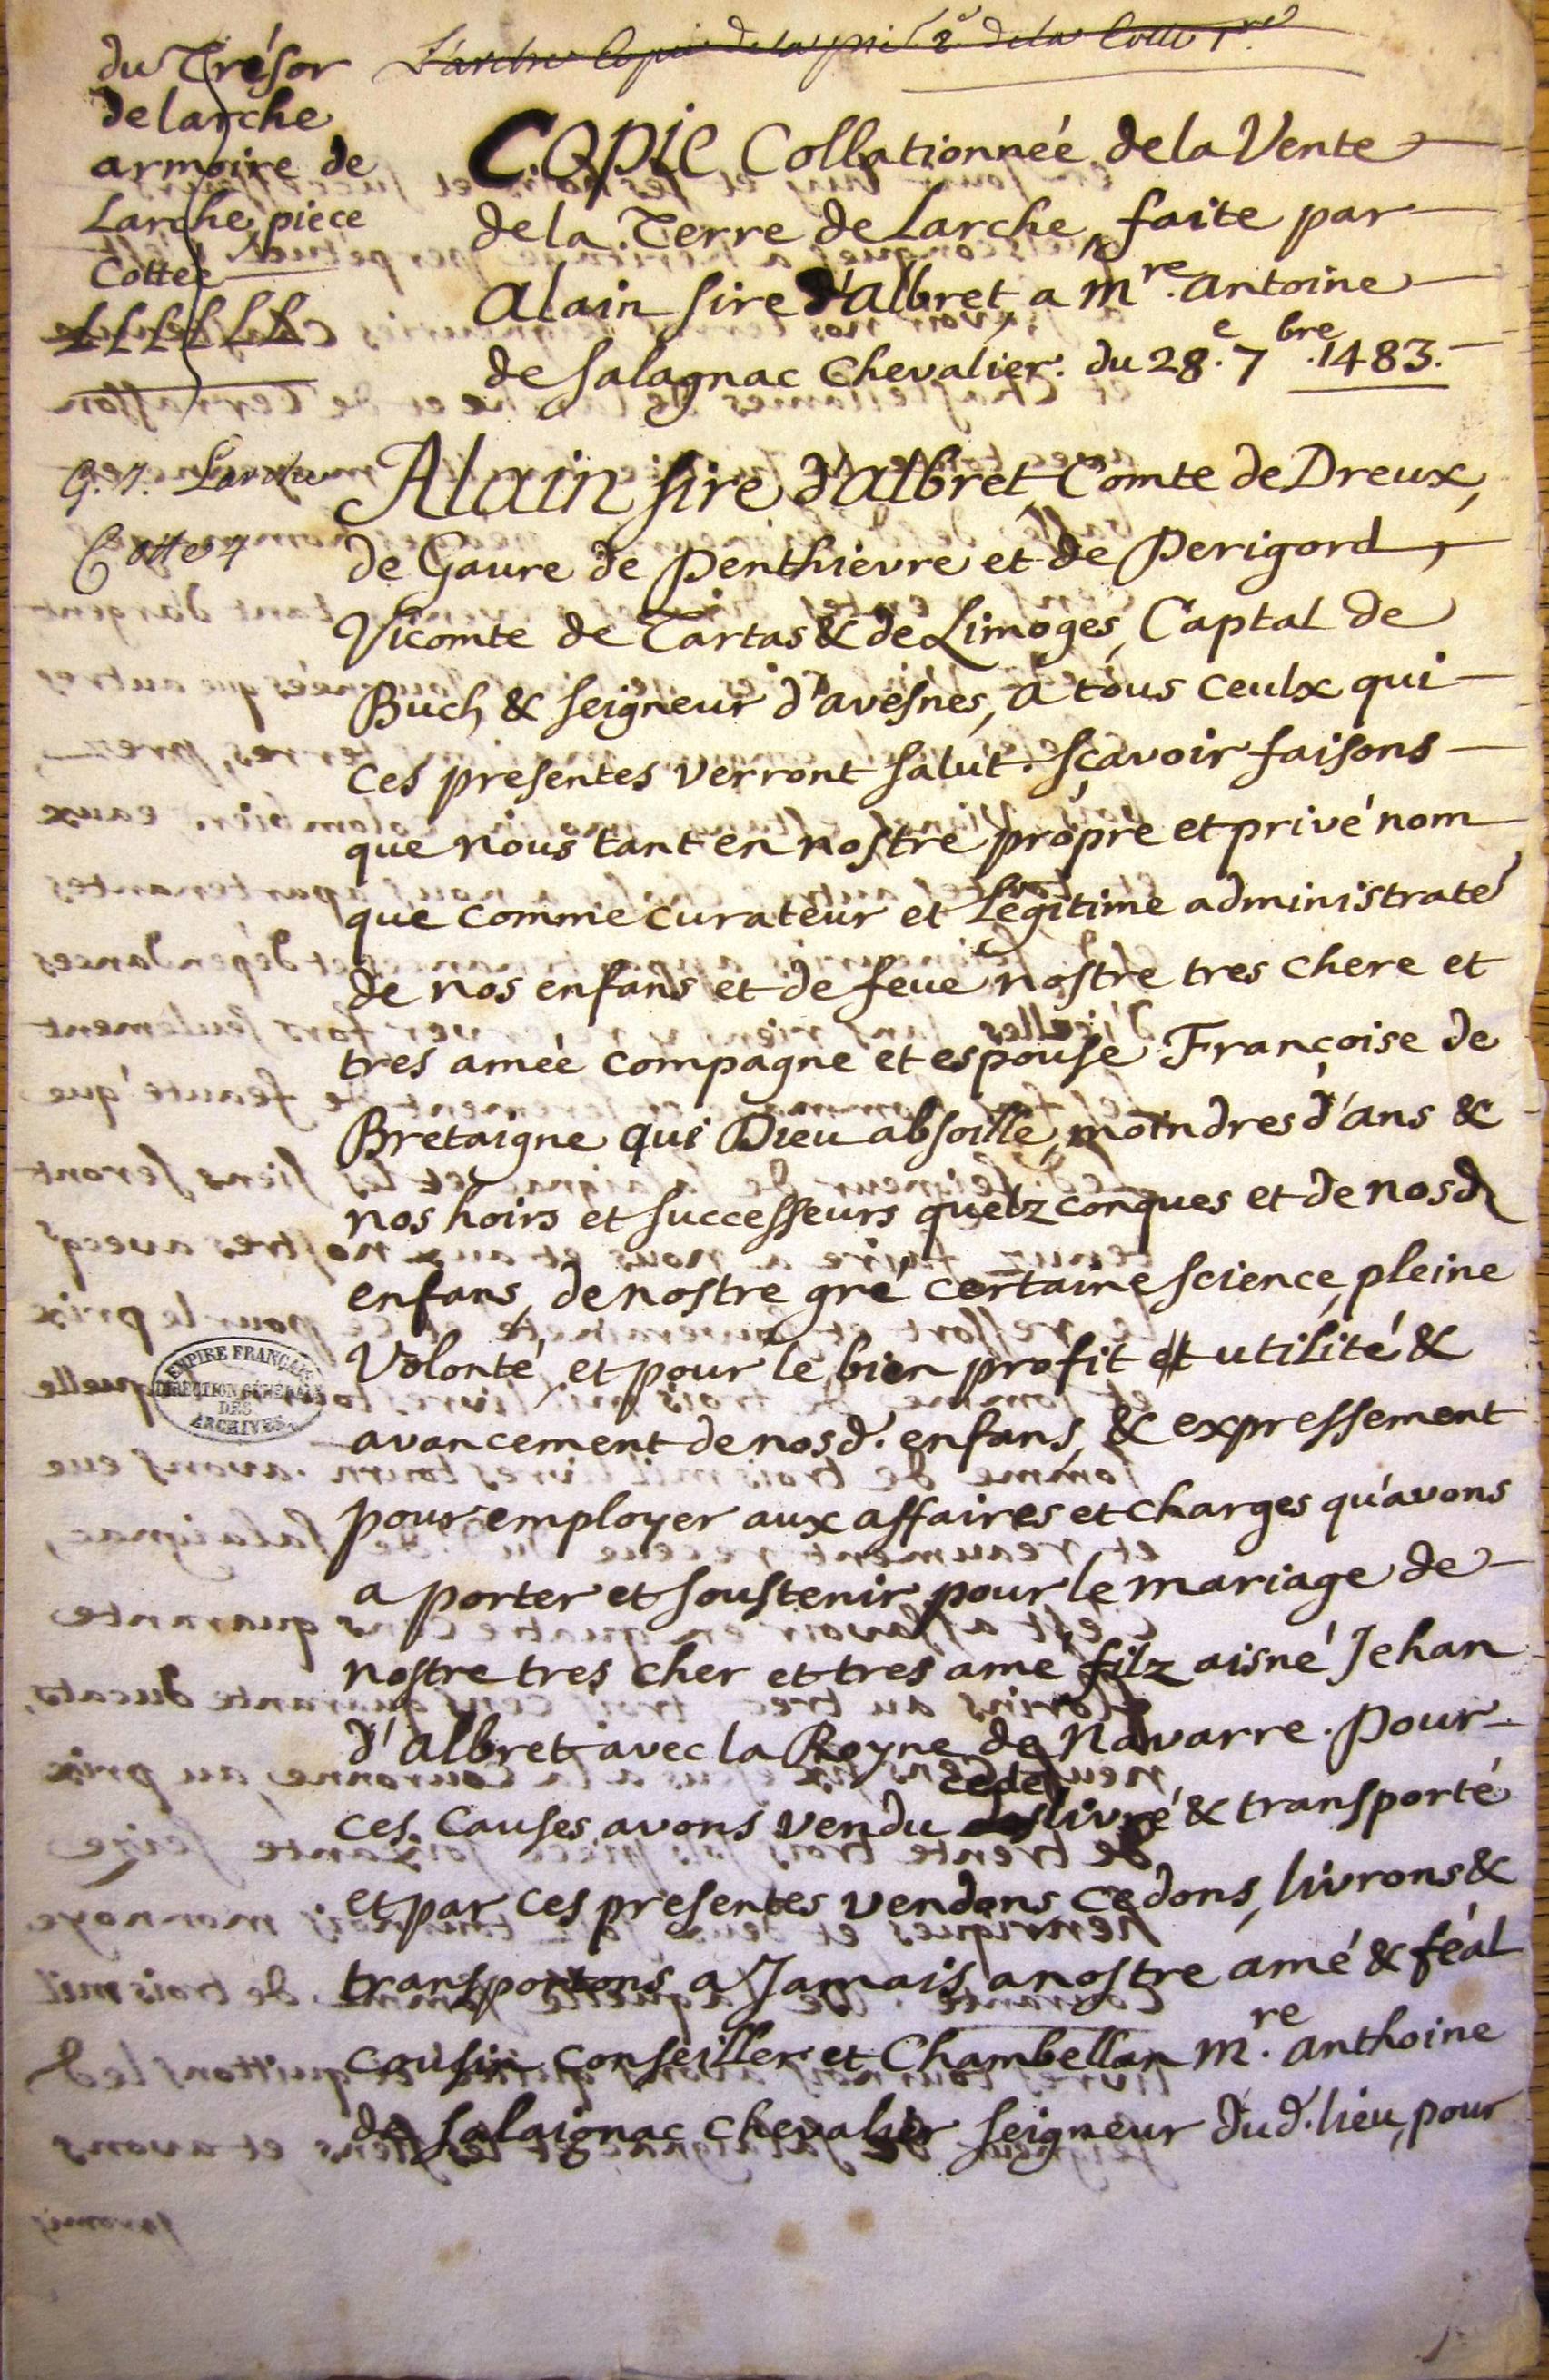 du Trésor
de larche
armoire de
Larche, piece
Cottée
LLLLLL
Larche Copie de la pie. 2e de la Cotte 1re
Copie Collationnée de la Vente
de la Terre de Larche, faite par
Alain sire d'Albret a Mre. Antoine
de Salagnac Chevalier. du 28.e 7bre. 1483.
G. 7. Larche
Cotte 7
Alain sire d'Albret, Comte de Dreux,
de Gaure de Penthievre et de Perigord,
Vicomte de Tartas & de Limoges, Captal de
Buch, & seigneur d'avesnes, a tous ceulx qui
ces presentes verront salut. sçavoir faisons
que nous tant en nostre propre et privé nom
que comme curateur et Légitime administraté
de nos enfans et de feue nostre tres chere et
tres amée compagne et espouse Françoise de
Bretaigne qui Dieu absoille, moindres d'ans &
nos hoirs et successeurs quelzconques et de nosd
enfans, de nostre gré certaine science, pleine
Volonté, et pour le bien profit et utilité &
avancement de nosd. enfans, & expressement
pour employer aux affaires et charges qu'avons
a porter et soustenir pour le mariage de
nostre tres cher et tres amé filz aisné Jehan
d'Albret avec la Royne de Navarre. Pour
cedé
ces causes avons vendu livré & transporté
et par ces presentes vendons cedons, livrons &
transportons a Jamais a nostre amé & féal
cousin conseiller et Chambellan Mre. Anthoine
de Salaignac chevalier seigneur dud. lieu, pour
EMPIRE FRANÇAIS
DIRECTION GÉNÉRALE
DES
ARCHIVES